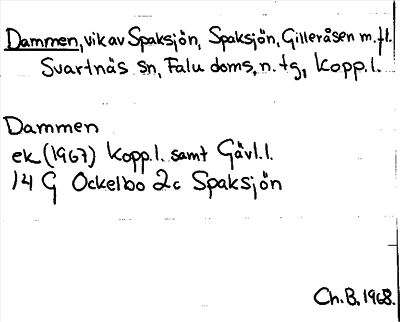 Dammen, vik av Spaksjön, Spaksjön, Gilleråsen m.fl.
Svartnäs sn, Falu doms. n. tg, Kopp.l.
Dammen
ek (1967) Kopp.l. samt Gävl.l.
14 G Ockelbo 2c Spaksjön
Ch.B. 1968.